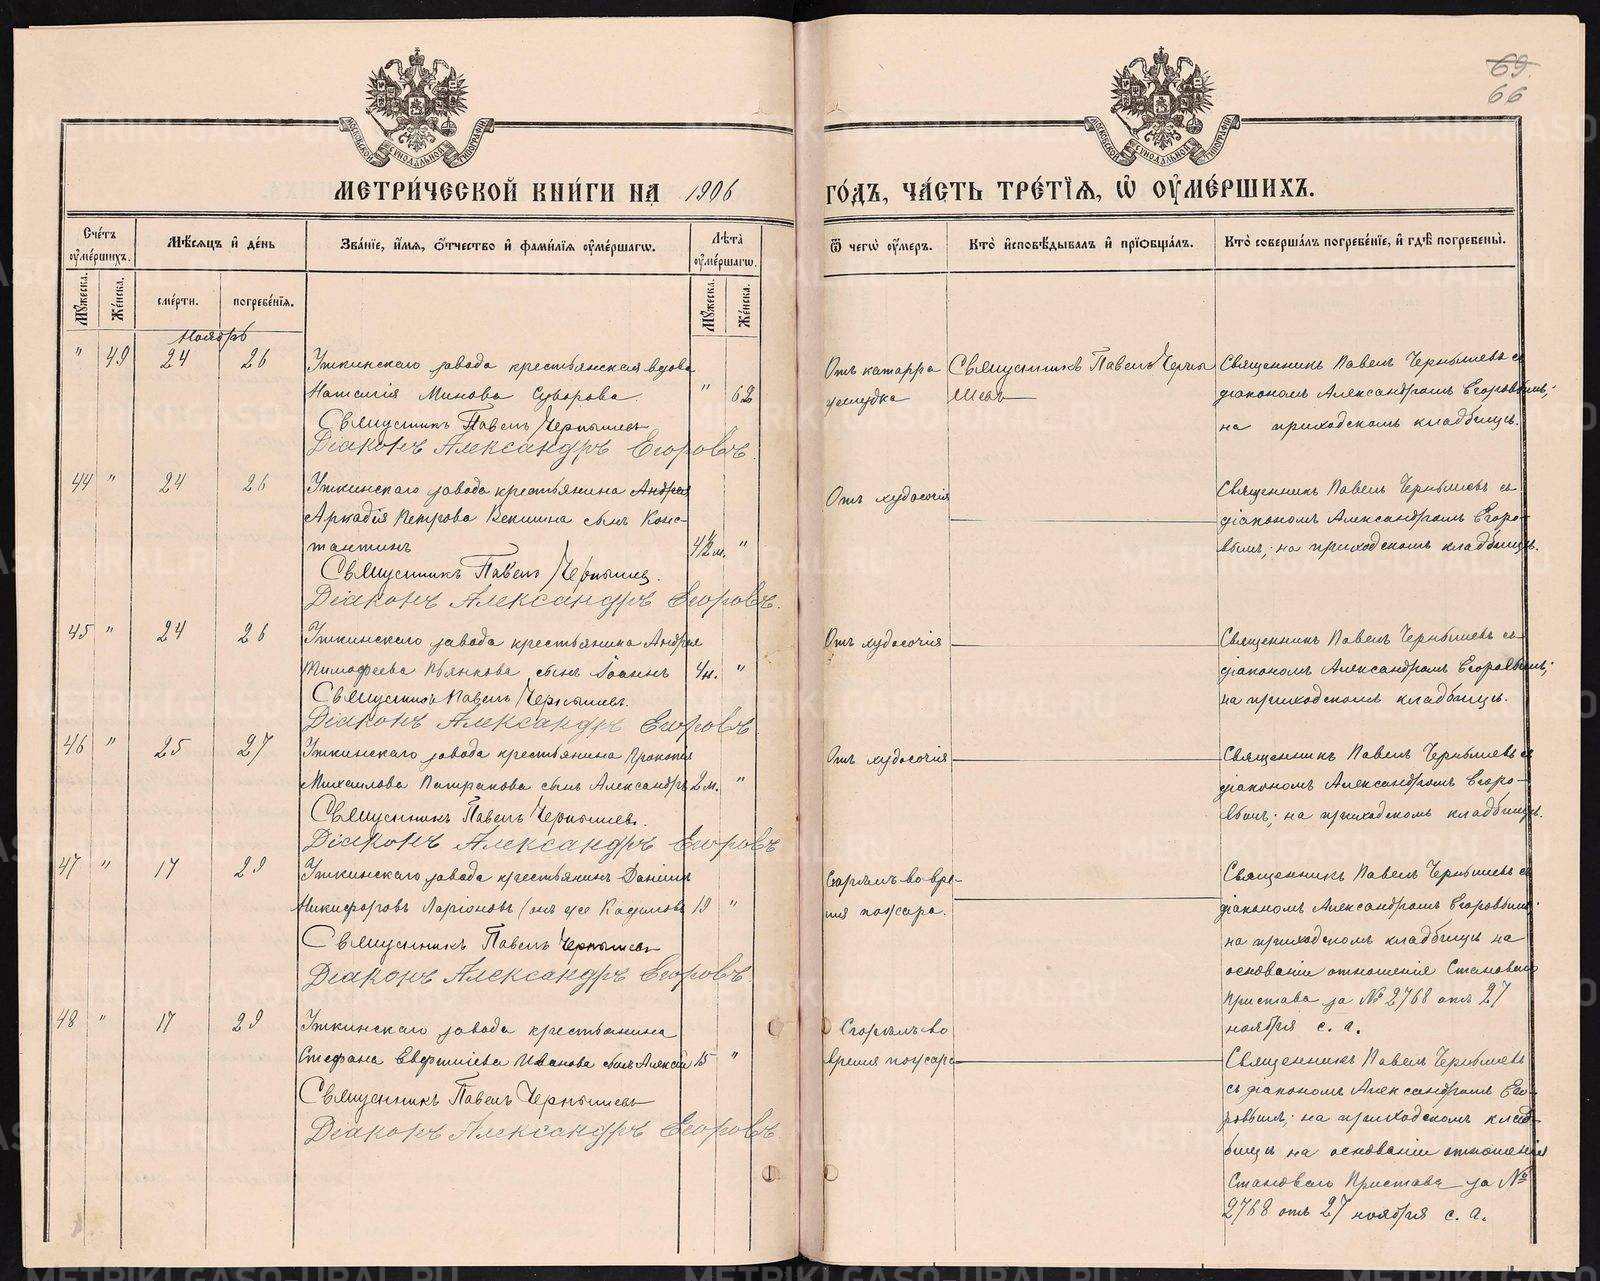 69.
66
МОСКОВСКОЙ СУНОДАЛЬНОЙ ТИПОГРАФІИ
МОСКОВСКОЙ СУНОДАЛЬНОЙ ТИПОГРАФІИ
МЕТРИ́ЧЕСКОЙ КНИ́ГИ НА 1906 ГО́ДЪ, ЧА́СТЬ ТРЕ́ТІЯ, Ѡ҆ ОУ҆МЕ́РШИХЪ.
Сче́тъ оу҆ме́ршихъ.
Мꙋ́жеска.
Же́нска.
Мѣ́сяцъ и҆ де́нь
сме́рти.
погребе́нїѧ.
Зва́нїе, и҆́мѧ, ѻ҆́тчество и҆ фами́лїѧ оу҆ме́ршагѡ.
Лѣ̑та оу҆ме́ршагѡ.
Мꙋ́жеска.
Же́нска.
Ѿ чегѡ̀ оу҆́меръ.
Кто̀ и҆сповѣ́дывалъ и҆ прїѡбща́лъ.
Кто̀ соверша́лъ погребе́нїе, и҆ гдѣ̀ погребены̀.
Ноябрь
" 49 24 26
Уткинскаго завода крестьянская вдова
Наталія Минова Суворова " 62
Священникъ Павелъ Чернышевъ
Діаконъ Александръ Егоровъ.
Отъ катарра
желудка
Священникъ Павелъ Черны
шевъ
Священникъ Павелъ Чернышевъ съ
діакономъ Александромъ Егоровымъ;
на приходскомъ кладбищѣ.
44 " 24 26
Уткинскаго завода крестьянина Андрея
Аркадія Петрова Векшина сынъ Конс-
тантинъ 4½ м. "
Священникъ Павелъ Чернышев.
Діаконъ Александръ Егоровъ.
Отъ худосочія
Священникъ Павелъ Чернышевъ съ
діакономъ Александромъ Егоро-
вымъ; на приходскомъ кладбищѣ.
45 " 24 26
Уткинскаго завода крестьянина Андрея
Тимофеева Пьянкова сынъ Іоаннъ 4н. "
Священникъ Павелъ Чернышев.
Діаконъ Александръ Егоровъ
Отъ худосочія
Священникъ Павелъ Чернышевъ съ
діакономъ Александромъ Егоровымъ;
на приходскомъ кладбищѣ.
46 " 25 27
Уткинскаго завода крестьянина Прокопія
Михаилова Патракова сынъ Александръ 2м. "
Священникъ Павелъ Чернышевъ.
Діаконъ Александръ Егоровъ
Отъ худосочія
Священникъ Павелъ Чернышевъ съ
діакономъ Александромъ Егоро-
вымъ; на приходскомъ кладбищѣ.
47 " 17 29
Уткинскаго завода крестьянинъ Даніилъ
Никифоровъ Ларіоновъ (онъ же Кадимовъ 19 "
Священникъ Павелъ Чернышевъ
Діаконъ Александръ Егоровъ.
Сгорѣлъ во вре-
мя пожара.
Священникъ Павелъ Чернышевъ съ
діакономъ Александромъ Егоровымъ;
на приходскомъ кладбищѣ на
основаніи отношенія Становаго
Пристава за № 2768 отъ 27
ноября с. г.
48 " 17 29
Уткинскаго завода крестьянина
Стефана Евфиміева Иванова сынъ Алексій 15 "
Священникъ Павелъ Чернышевъ
Діаконъ Александръ Егоровъ
Сгорѣлъ во
время пожара
Священникъ Павелъ Чернышевъ
съ діакономъ Александромъ Его-
ровымъ; на приходскомъ клад-
бищѣ на основаніи отношенія
Становаго Пристава за №
2768 отъ 27 ноября с. г.